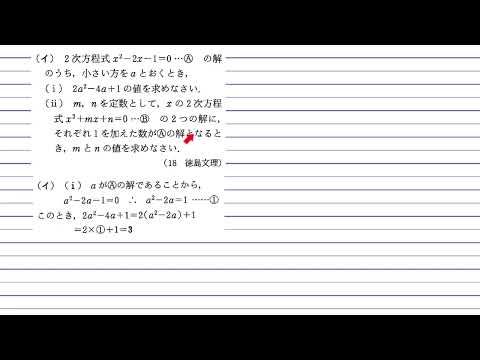 (イ) 2次方程式 x²－2x－1＝0 …Ⓐ の解
のうち，小さい方を a とおくとき，
(ⅰ) 2a²－4a＋1 の値を求めなさい．
(ⅱ) m，n を定数として，x の2次方程
式 x²＋mx＋n＝0 …Ⓑ の2つの解に，
それぞれ1を加えた数がⒶの解となると
き，m と n の値を求めなさい．
(18 徳島文理)
(イ) (ⅰ) a がⒶの解であることから，
a²－2a－1＝0 ∴ a²－2a＝1 ……①
このとき，2a²－4a＋1＝2(a²－2a)＋1
＝2×①＋1＝3